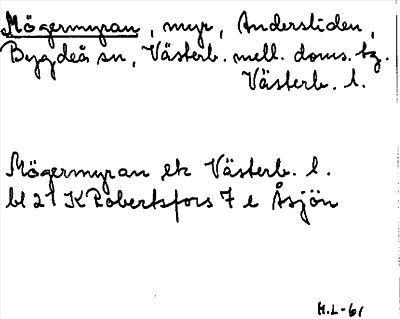 Mögermyran, myr, Andersliden,
Bygdeå sn, Västerb. mell. doms. tg.
Västerb. l.
Mögermyran ek Västerb. l.
bl 21 K Robertsfors 7 e Åsjön
H.L-61